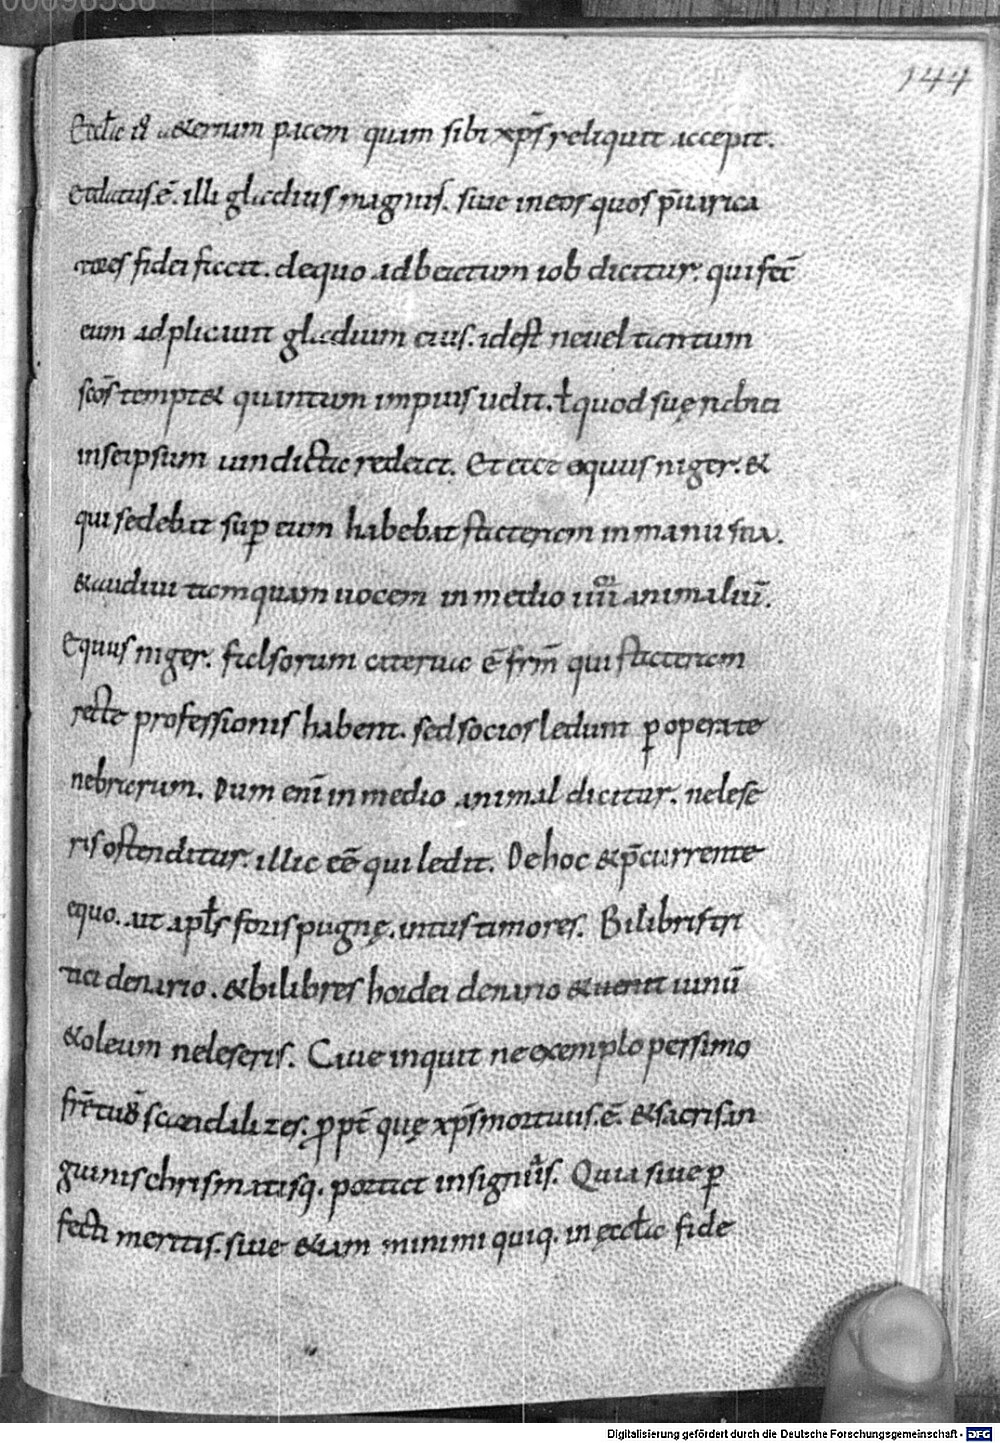 00096536
144
Eccłae id & aeternam pacem quam sibi xp̄s reliquit accepit.
Et datus .ē. illi gladius magnus. siue in eos quos p̄uarica
tores fidei facit. de quo ad beatum iob dicitur. qui fec̄
eum adplicauit gladium eius. id est ne uel tantum
sc̄os tempt& quantum impius uelit. ł quod suę rabiei
in se ipsum uindictae redeat. Et ecce equus niger. &
qui sedebat sup eum habebat stateram in manu sua.
& audiui tamquam uocem in medio iiii animaliū.
Equus niger. falsorum caterua ē fr̄m qui stateram
recte professionis habent. sed socios ledunt p opera te
nebrarum. Dum enī in medio animal dicitur. ne lese
ris ostenditur. illic eē qui ledit. De hoc & p̄currente
equo. ait apłs foris pugnę. intus timores. Bilibris tri
tici denario. & bilibres hordei denario & uenit uinū
& oleum ne leseris. Caue inquit ne exemplo pessimo
fr̄em tuū scandalizes. ppt̄ quę xp̄s mortuus .ē. & sacri san
guinis chrismatisq. portat insignius. Quia siue p
fecti meritis. siue etiam minimi quiq. in ęccłae fide
Digitalisierung gefördert durch die Deutsche Forschungsgemeinschaft - DFG